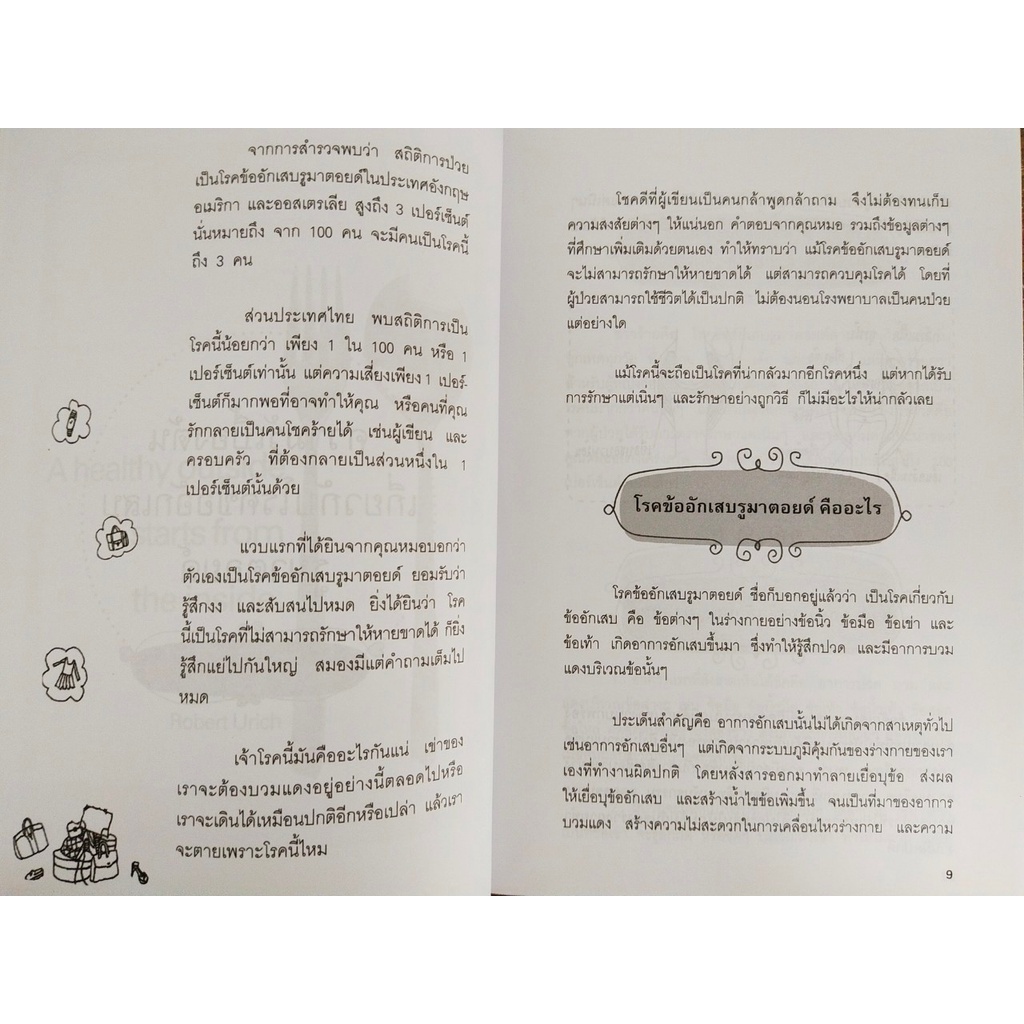 จากการสำรวจพบว่า สถิติการป่วย
เป็นโรคข้ออักเสบรูมาตอยด์ในประเทศอังกฤษ
อเมริกา และออสเตรเลีย สูงถึง 3 เปอร์เซ็นต์
นั่นหมายถึง จาก 100 คน จะมีคนเป็นโรคนี้
ถึง 3 คน
ส่วนประเทศไทย พบสถิติการเป็น
โรคนี้น้อยกว่า เพียง 1 ใน 100 คน หรือ 1
เปอร์เซ็นต์เท่านั้น แต่ความเสี่ยงเพียง 1 เปอร์-
เซ็นต์ก็มากพอที่อาจทำให้คุณ หรือคนที่คุณ
รักกลายเป็นคนโชคร้ายได้ เช่นผู้เขียน และ
ครอบครัว ที่ต้องกลายเป็นส่วนหนึ่งใน 1
เปอร์เซ็นต์นั้นด้วย
แวบแรกที่ได้ยินจากคุณหมอบอกว่า
ตัวเองเป็นโรคข้ออักเสบรูมาตอยด์ ยอมรับว่า
รู้สึกงง และสับสนไปหมด ยิ่งได้ยินว่า โรค
นี้เป็นโรคที่ไม่สามารถรักษาให้หายขาดได้ ก็ยิ่ง
รู้สึกแย่ไปกันใหญ่ สมองมีแต่คำถามเต็มไป
หมด
เจ้าโรคนี้มันคืออะไรกันแน่ เข่าของ
เราจะต้องบวมแดงอยู่อย่างนี้ตลอดไปหรือ
เราจะเดินได้เหมือนปกติอีกหรือเปล่า แล้วเรา
จะตายเพราะโรคนี้ไหม
โชคดีที่ผู้เขียนเป็นคนกล้าพูดกล้าถาม จึงไม่ต้องทนเก็บ
ความสงสัยต่างๆ ให้แน่นอก คำตอบจากคุณหมอ รวมถึงข้อมูลต่างๆ
ที่ศึกษาเพิ่มเติมด้วยตนเอง ทำให้ทราบว่า แม้โรคข้ออักเสบรูมาตอยด์
จะไม่สามารถรักษาให้หายขาดได้ แต่สามารถควบคุมโรคได้ โดยที่
ผู้ป่วยสามารถใช้ชีวิตได้เป็นปกติ ไม่ต้องนอนโรงพยาบาลเป็นคนป่วย
แต่อย่างใด
แม้โรคนี้จะถือเป็นโรคที่น่ากลัวมากอีกโรคหนึ่ง แต่หากได้รับ
การรักษาแต่เนิ่นๆ และรักษาอย่างถูกวิธี ก็ไม่มีอะไรให้น่ากลัวเลย
โรคข้ออักเสบรูมาตอยด์ คืออะไร
โรคข้ออักเสบรูมาตอยด์ ชื่อก็บอกอยู่แล้วว่า เป็นโรคเกี่ยวกับ
ข้ออักเสบ คือ ข้อต่างๆ ในร่างกายอย่างข้อนิ้ว ข้อมือ ข้อเข่า และ
ข้อเท้า เกิดอาการอักเสบขึ้นมา ซึ่งทำให้รู้สึกปวด และมีอาการบวม
แดงบริเวณข้อนั้นๆ
ประเด็นสำคัญคือ อาการอักเสบนั้นไม่ได้เกิดจากสาเหตุทั่วไป
เช่นอาการอักเสบอื่นๆ แต่เกิดจากระบบภูมิคุ้มกันของร่างกายของเรา
เองที่ทำงานผิดปกติ โดยหลั่งสารออกมาทำลายเยื่อบุข้อ ส่งผล
ให้เยื่อบุข้ออักเสบ และสร้างน้ำไขข้อเพิ่มขึ้น จนเป็นที่มาของอาการ
บวมแดง สร้างความไม่สะดวกในการเคลื่อนไหวร่างกาย และความ
9